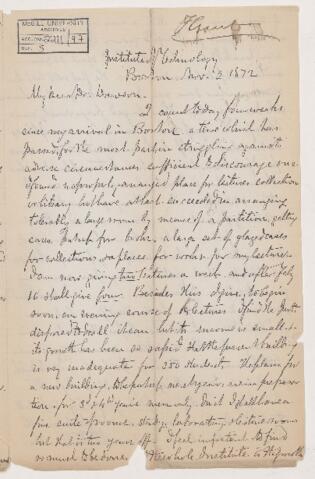 McGILL UNIVERSITY
ARCHIVES
ACC. NO. 2211/97
REF. 5
Institute of Technology
Boston Nov. 3 1872
My dear Dr. Dawson.
I count today four weeks
since my arrival in Boston, a time which has
passed for the most part in struggling against
adverse circumstances sufficient to discourage one.
I found no properly arranged place for lectures collection
or library but have at last succeeded in arranging
tolerably a large room by means of a partition, getting
cases for books, a large set of glazed cases
for collections, & a place for work for my lectures.
I am now giving two lectures a week and after Feby
10 shall give four. Besides this I give, to begin
soon, an evening course of lectures. I find the Inst.
disposed to do all I can but its income is small &
its growth has been so rapid that the present building
is very inadequate for 350 students. The plans for
a new building, to be put up next year, are in prepara-
tion for 3d & 4th years men only. In it I shall have a
fine suite of rooms, study, laboratory, & lecture room
but that is two years off. I feel impatient to find
so much to be done. The whole Institute